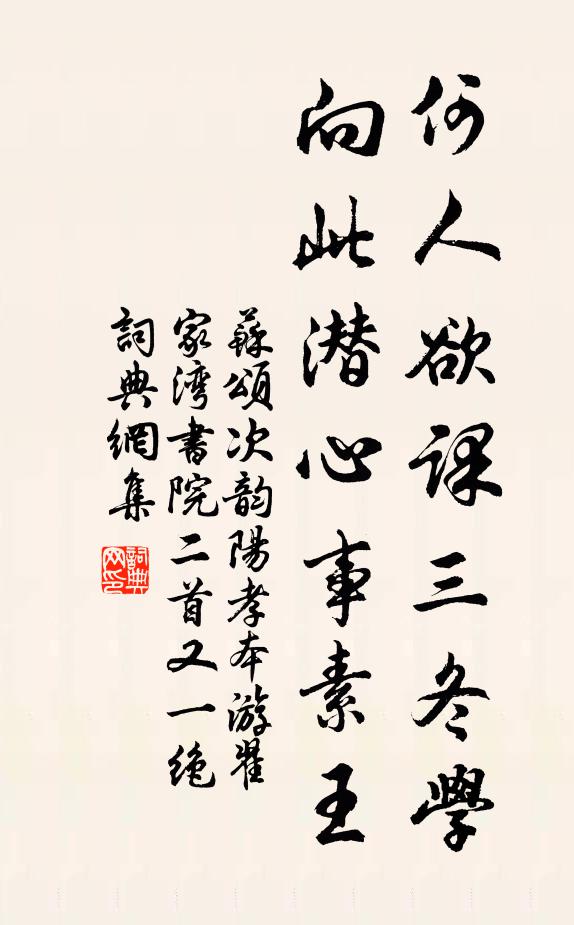 何人欲课三冬學
向此潜心事素王
蘇頌次韵陽孝本游瞿
家湾書院二首又一绝
詞典網集
詞典网印